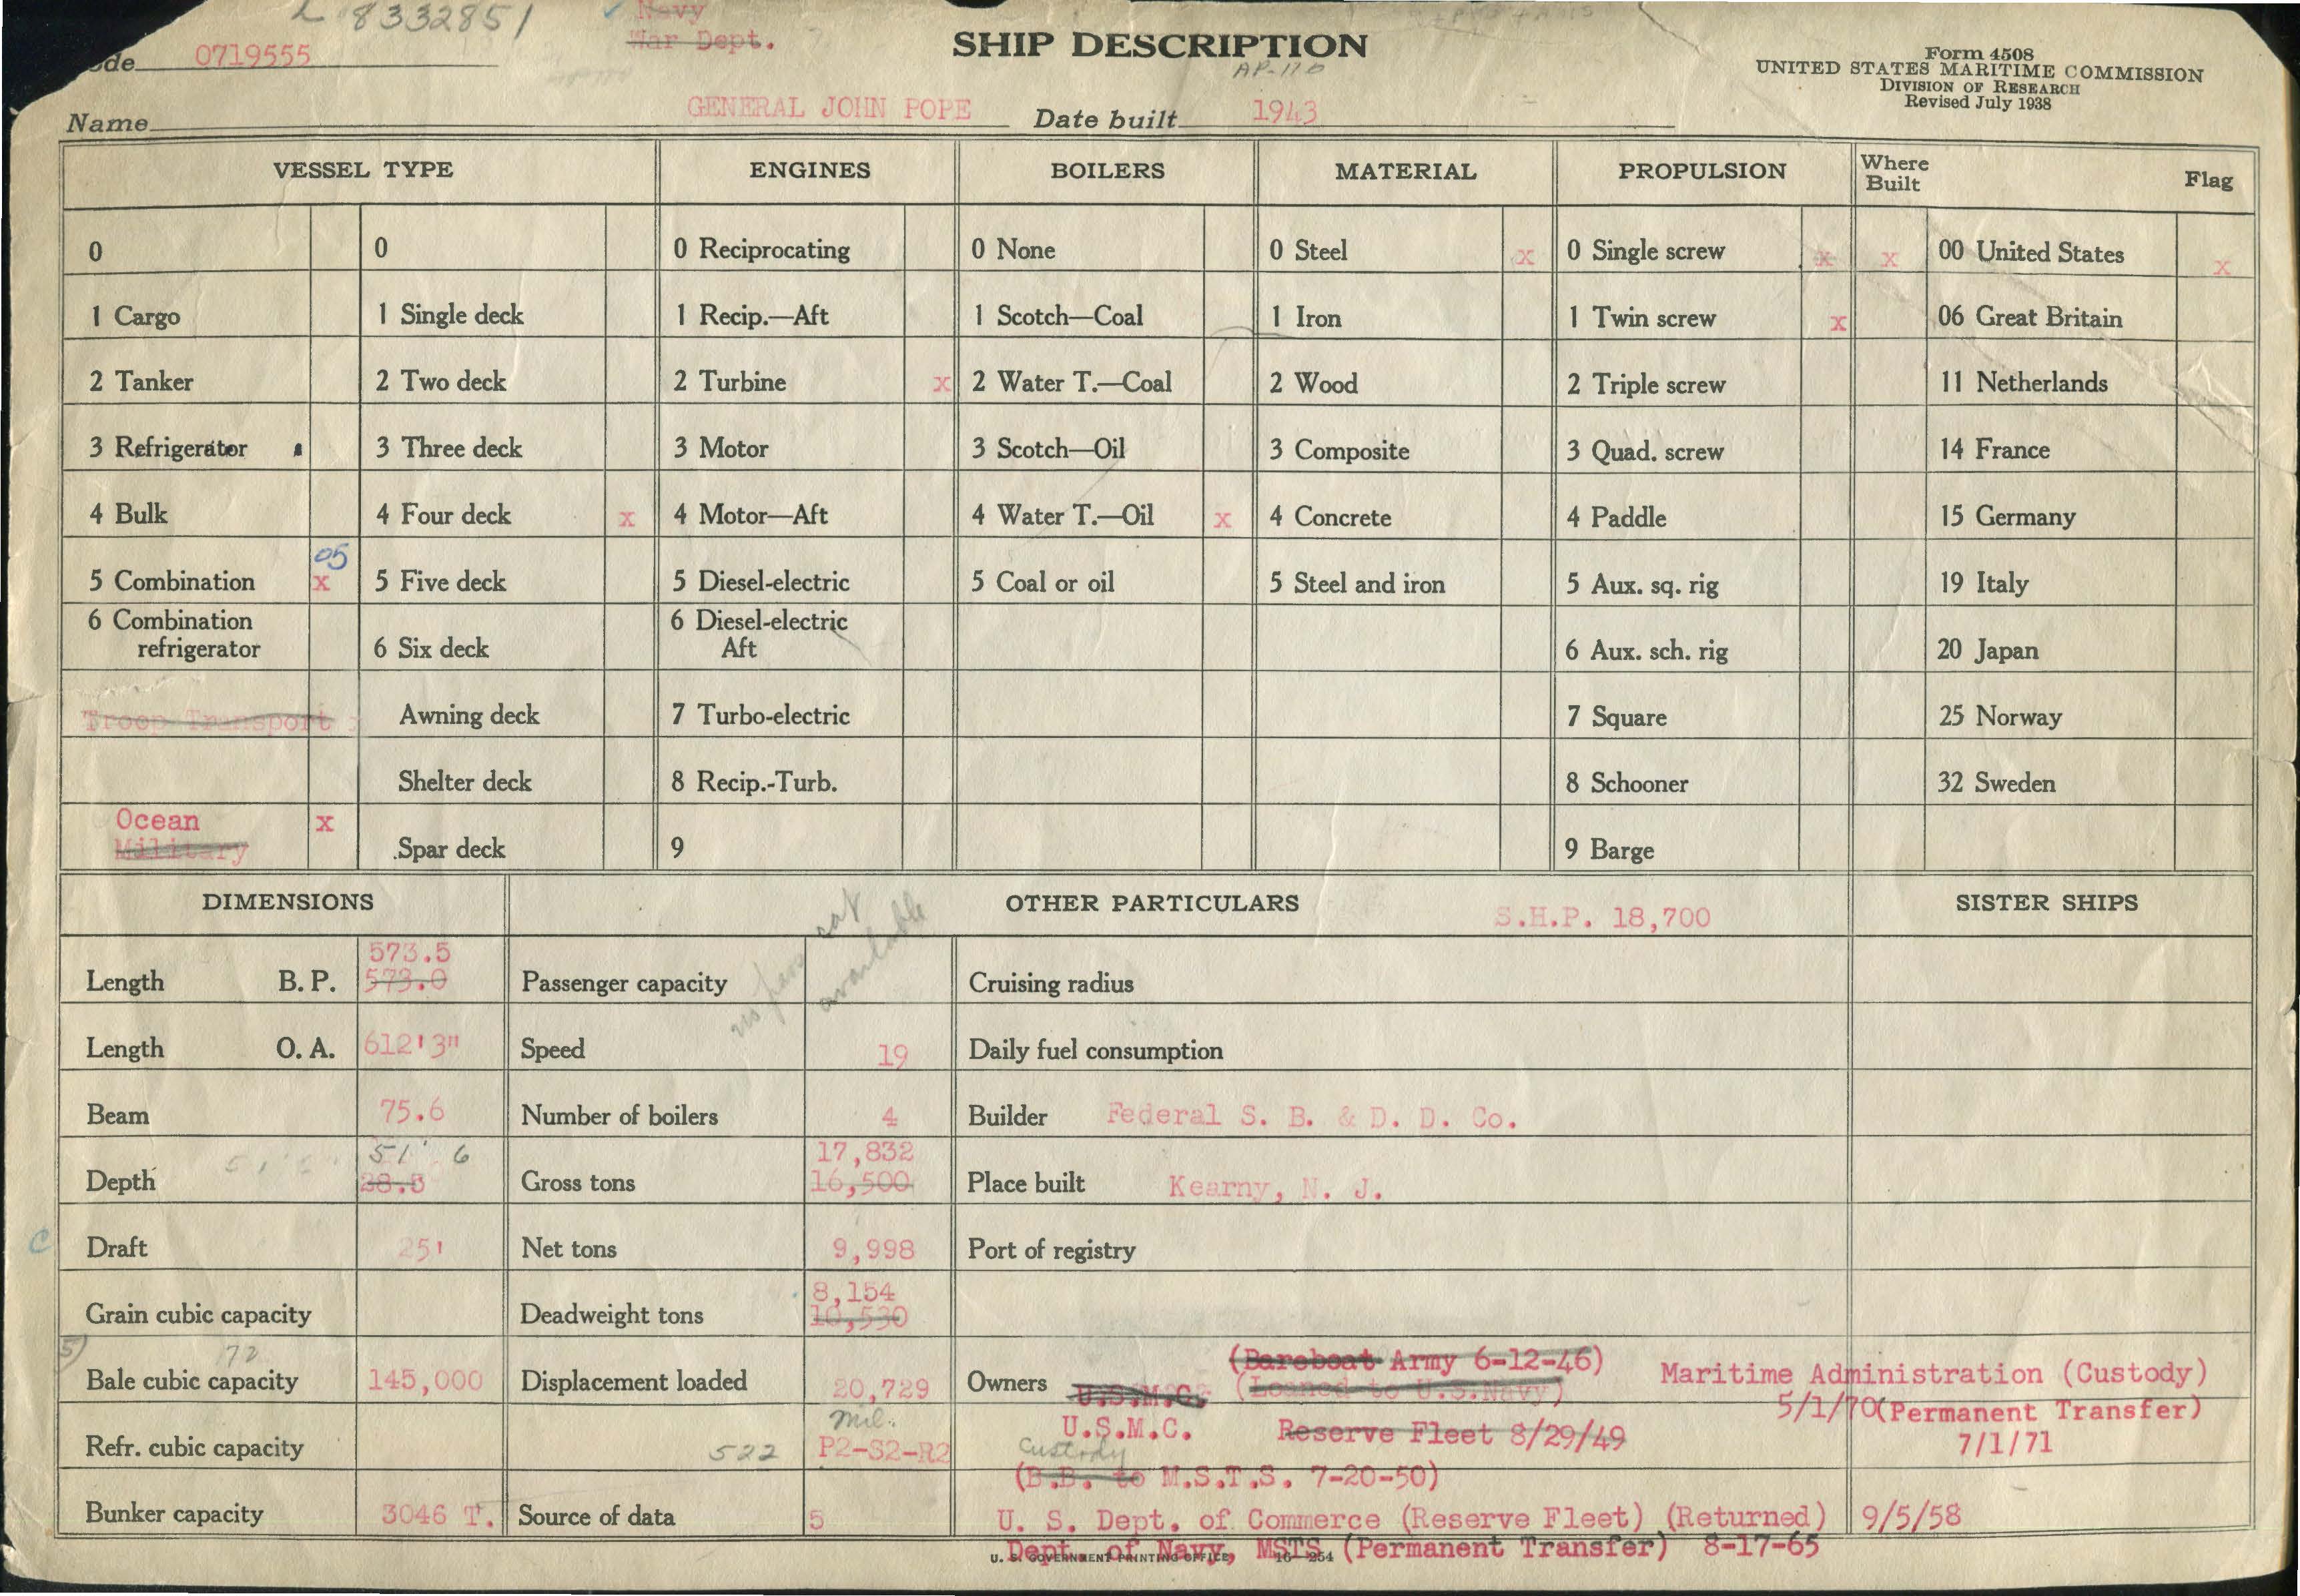 L 8332851
✓ Navy
War Dept.
0719555
SHIP DESCRIPTION
AP-110
Form 4508
UNITED STATES MARITIME COMMISSION
DIVISION OF RESEARCH
Revised July 1938
Name GENERAL JOHN POPE Date built 1943
VESSEL TYPE ENGINES BOILERS MATERIAL PROPULSION Where Built Flag
0 0 0 Reciprocating 0 None 0 Steel x 0 Single screw x x 00 United States x
1 Cargo 1 Single deck 1 Recip.—Aft 1 Scotch—Coal 1 Iron 1 Twin screw x 06 Great Britain
2 Tanker 2 Two deck 2 Turbine x 2 Water T.—Coal 2 Wood 2 Triple screw 11 Netherlands
3 Refrigerator 3 Three deck 3 Motor 3 Scotch—Oil 3 Composite 3 Quad. screw 14 France
4 Bulk 4 Four deck x 4 Motor—Aft 4 Water T.—Oil x 4 Concrete 4 Paddle 15 Germany
05
5 Combination x 5 Five deck 5 Diesel-electric 5 Coal or oil 5 Steel and iron 5 Aux. sq. rig 19 Italy
6 Combination refrigerator 6 Six deck 6 Diesel-electric Aft 6 Aux. sch. rig 20 Japan
Troop Transport Awning deck 7 Turbo-electric 7 Square 25 Norway
Shelter deck 8 Recip.-Turb. 8 Schooner 32 Sweden
Ocean x
Military Spar deck 9 9 Barge
DIMENSIONS OTHER PARTICULARS S.H.P. 18,700 SISTER SHIPS
573.5
Length B. P. 573.0 Passenger capacity no pass available Cruising radius
Length O. A. 612'3" Speed 19 Daily fuel consumption
Beam 75.6 Number of boilers 4 Builder Federal S. B. & D. D. Co.
51' 6 17,832
Depth Gross tons 16,500 Place built Kearny, N. J.
C Draft 25' Net tons 9,998 Port of registry
8,154
Grain cubic capacity Deadweight tons 10,530
(Bareboat Army 6-12-46)
5) 72
Bale cubic capacity 145,000 Displacement loaded 20,729 Owners U.S.M.C. (Loaned to U.S.Navy) Maritime Administration (Custody)
5/1/70(Permanent Transfer)
mil. U.S.M.C. Reserve Fleet 8/29/49 7/1/71
Refr. cubic capacity 522 P2-S2-R2 Custody
(B.B. to M.S.T.S. 7-20-50)
Bunker capacity 3046 T. Source of data 5 U. S. Dept. of Commerce (Reserve Fleet) (Returned) 9/5/58
Dept. of Navy, MSTS (Permanent Transfer) 8-17-65
U. S. GOVERNMENT PRINTING OFFICE